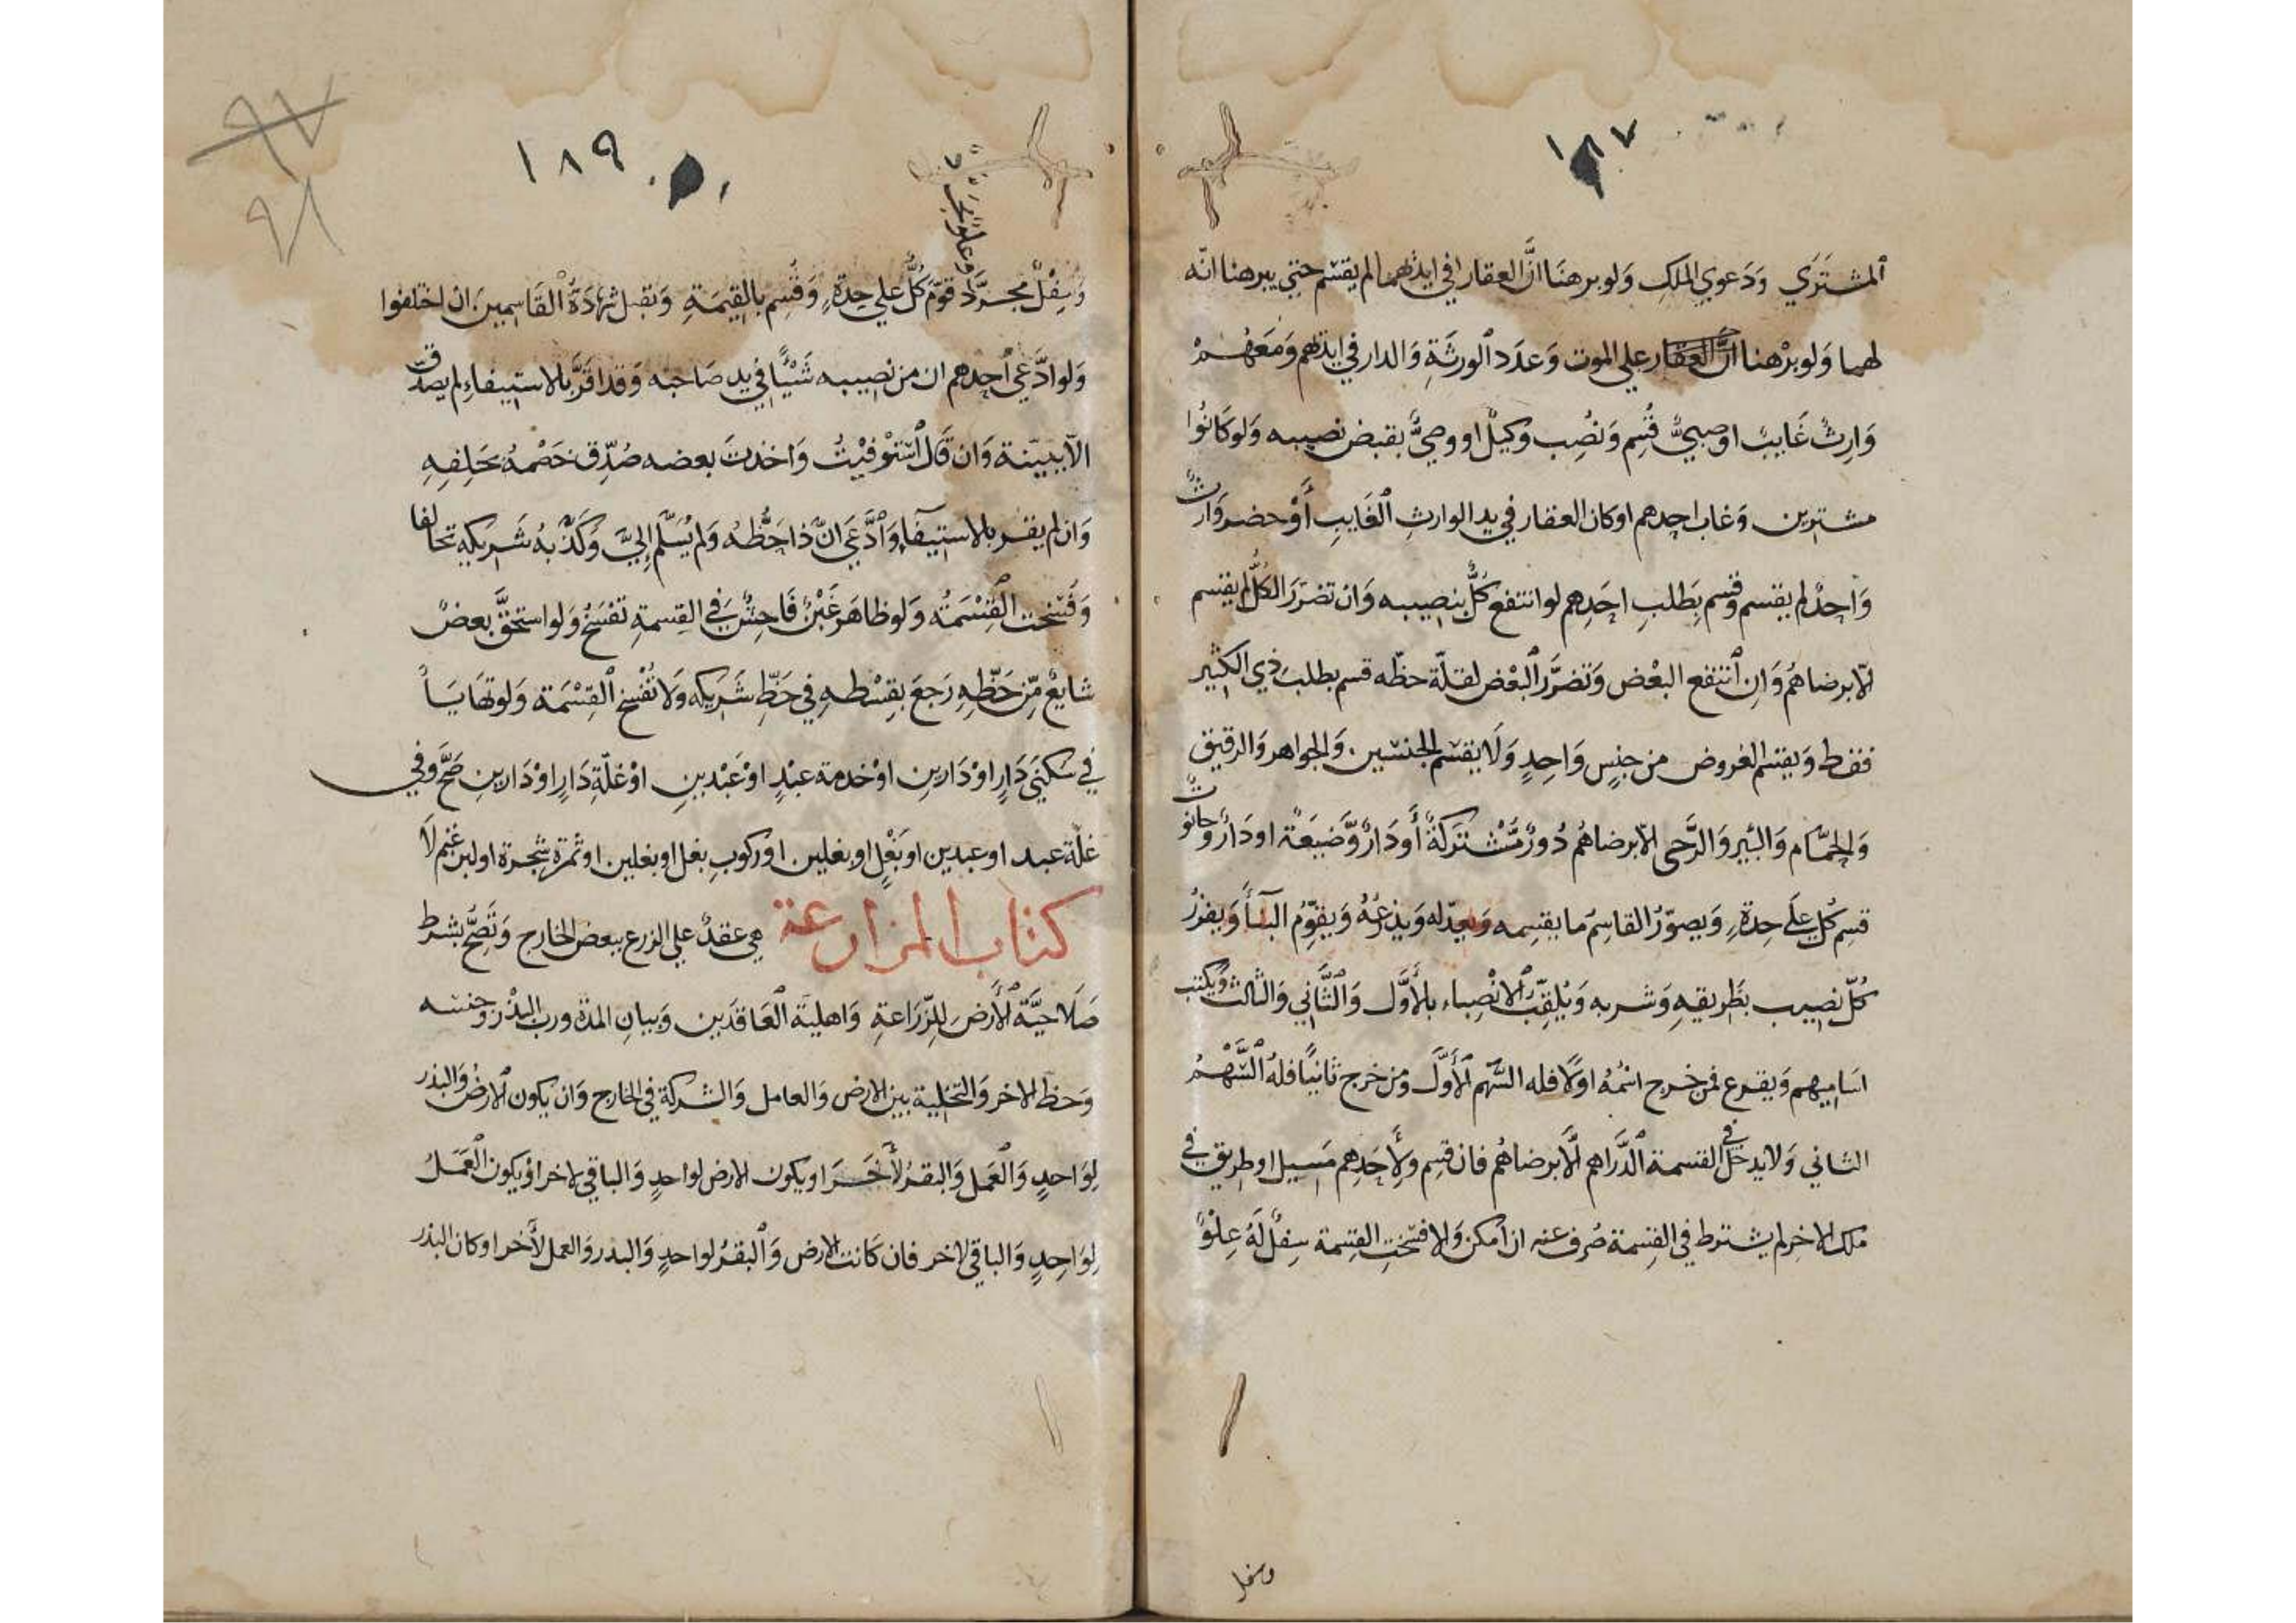 ١٨٧
المشتري ودعوي الملك ولو برهنا ان العقار في ايديهما لم يقسم حتي يبرهنا انه
لهما ولو برهنا علي الموت وعدد الورثة والدار في ايديهم ومعهم
وارث غايب او صبي قسم ونصب وكيل او وصي بقبض نصيبه ولو كانوا
مشترين وغاب احدهم او كان العقار في يد الوارث الغايب أو حضر وارث
واحد لم يقسم وقسم بطلب احدهم لو انتفع كل بنصيبه وان تضرر الكل لم يقسم
الا برضاهم وان انتفع البعض وتضرر البعض لقلة حظه قسم بطلب ذي الكثير
فقط ويقسم العروض من جنس واحد ولا يقسم الجنسين والجواهر والرقيق
والحمام والبير والرحى الا برضاهم دور مشتركة أو دار وضيعة او دار وحانوت
قسم كل علي حدة ويصور القاسم ما يقسمه ويعدله ويذرعه ويقوم البنا ويفرز
كل نصيب بطريقه وشربه ويلقب الانصباء بالأول والثاني والثالث ويكتب
اساميهم ويقرع فمن خرج اسمه اولا فله السهم الأول ومن خرج ثانيا فله السهم
الثاني ولا يدخل في القسمة الدراهم الا برضاهم فان قسم ولأحدهم مسيل او طريق في
ملك الاخر لم يشترط في القسمة صرف عنه ان امكن والا فسخت القسمة سفل له علو
وسفل
٩٧
٩٨
١٨٩
وعلو مجرد
وسفل مجرد قوم كل علي حدة وقسم بالقيمة وتقبل شهادة القاسمين ان اختلفوا
ولو ادعي احدهم ان من نصيبه شيئا في يد صاحبه وقد اقر بالاستيفاء لم يصدق
الا ببينة وان قال استوفيت واخذت بعضه صدق خصمه بحلفه
وان لم يقر بالاستيفا وادعي ان ذا حظه ولم يسلم إلي وكذبه شريكه تحالفا
وفسخت القسمة ولو ظاهر غبن فاحش في القسمة تفسخ ولو استحق بعض
شايع من حظه رجع بقسطه في حظ شريكه ولا تفسخ القسمة ولو تهايآ
في سكني دار او دارين او خدمة عبد او عبدين او غلة دار او دارين صح وفي
غلة عبد او عبدين او بغل او بغلين او ركوب بغل او بغلين او ثمرة شجرة او لبن غنم لا
كتاب المزارعة هي عقد علي الزرع ببعض الخارج وتصح بشرط
صلاحية الأرض للزراعة واهلية العاقدين وبيان المدة ورب البذر وجنسه
وحظ الاخر والتخلية بين الارض والعامل والشركة في الخارج وان يكون الارض والبذر
لواحد والعمل والبقر لأخر او يكون الارض لواحد والباقي لاخر او يكون العمل
لواحد والباقي لاخر فان كانت الارض والبقر لواحد والبذر والعمل لأخر او كان البذر